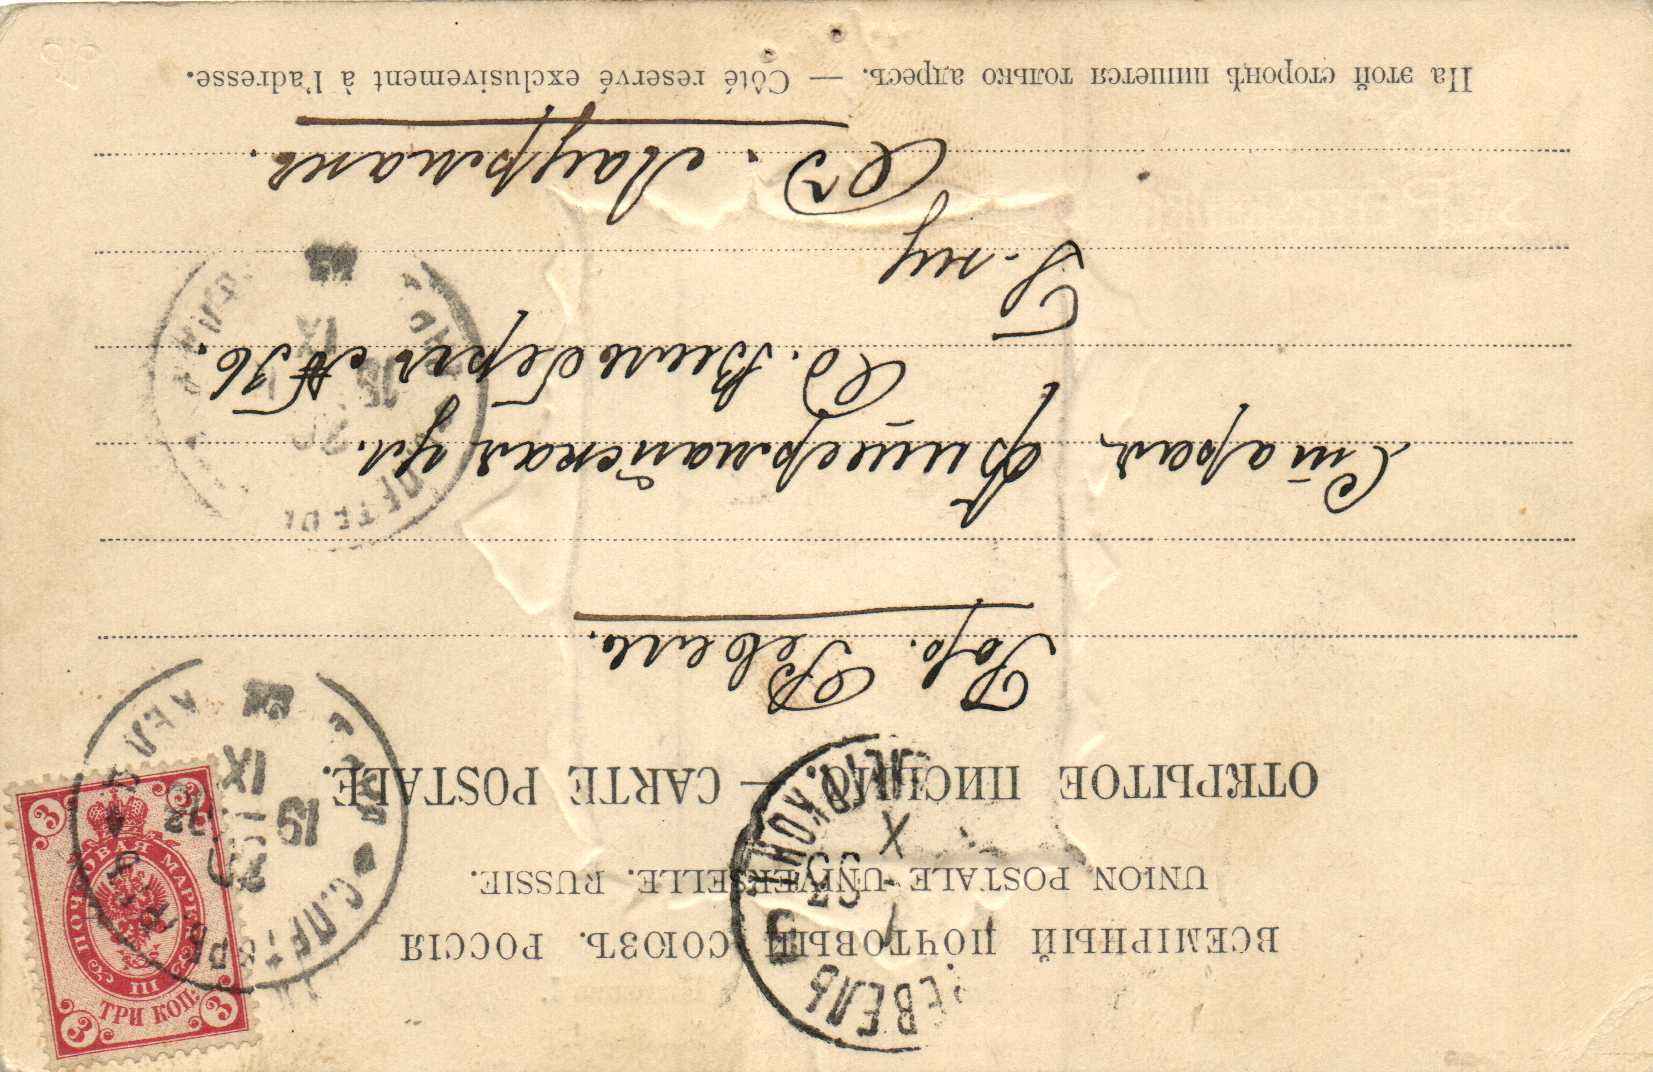 ВСЕМІРНЫЙ ПОЧТОВЫЙ СОЮЗЪ. РОССІЯ
UNION POSTALE UNIVERSELLE. RUSSIE.
ОТКРЫТОЕ ПИСЬМО. — CARTE POSTALE.
Гор. Ревель.
Старая Фишермайская ул.
д. Вельбергъ № 36.
Г-ну
Э. Лаурманъ.
На этой сторонѣ пишется только адресъ. — Côté reservé exclusivement à l'adresse.
ПОЧТОВАЯ МАРКА
III
ТРИ КОП.
3
3
3
3
С.ПЕТЕРБ
20
19
IX
РЕВЕЛЬ
1
X